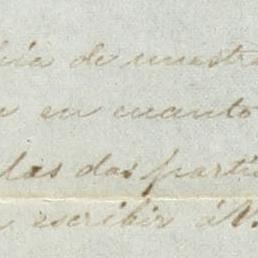 de nuestra
en cuanto
las dos parti
escribir á V.